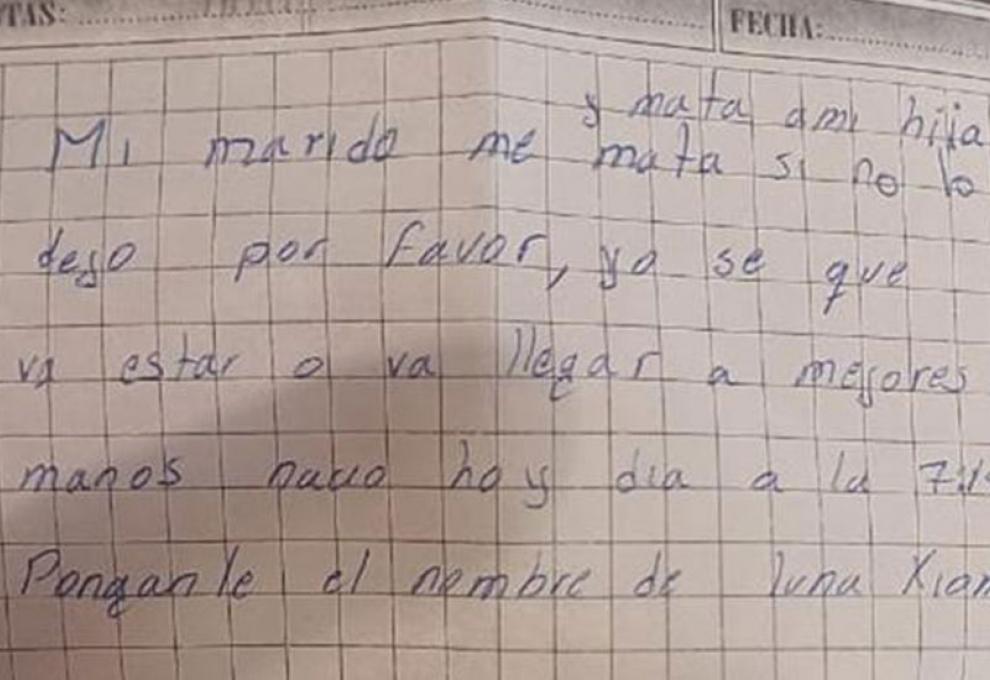 TAS:
FECHA:
y mata ami hija
Mi marido me mata si no lo
dejo por favor, yo se que
va estar o va llegar a mejores
manos nacio hoy dia a la
Ponganle el nombre de luna Xian